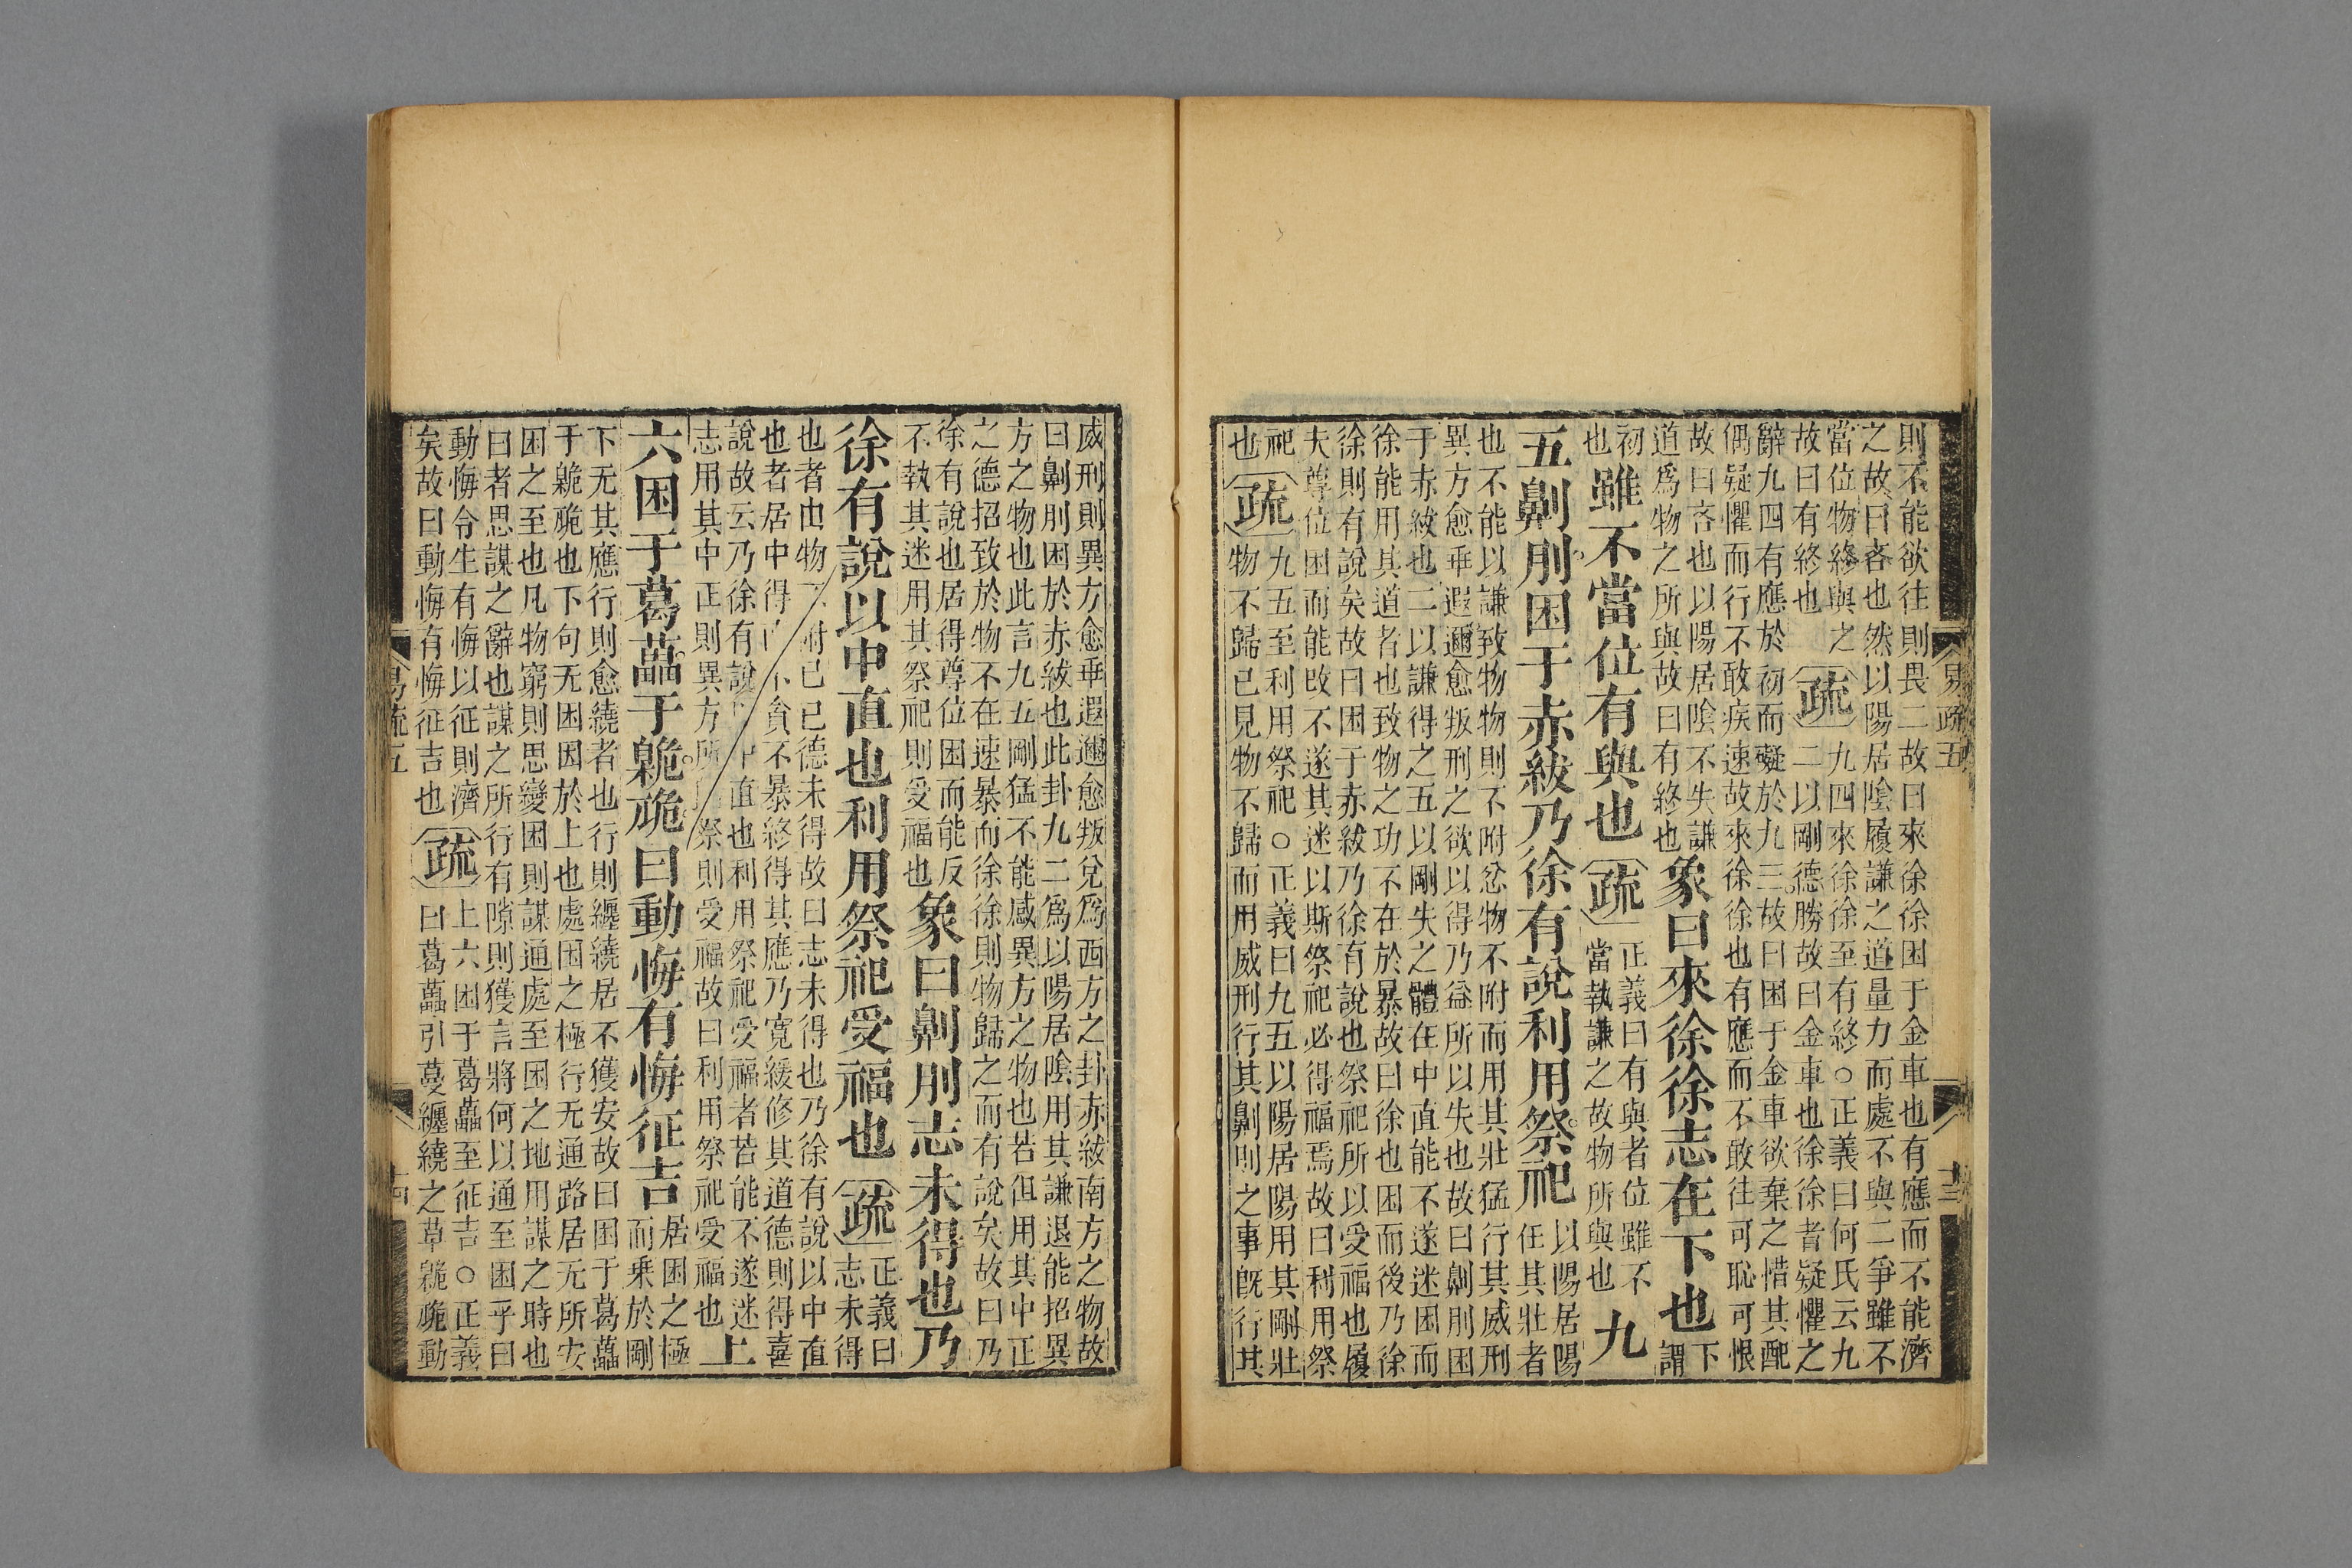 則不能欲往則畏二故曰來徐徐困于金車也有應而不能濟
之故曰吝也然以陽居陰履謙之道量力而處不與二爭雖不
當位物終與之疏九四來徐徐至有終○正義曰何氏云九
故曰有終也二以剛德勝故曰金車也徐徐者疑懼之
辭九四有應於初而礙於九二故曰困于金車欲棄之惜其配
偶疑懼而行不敢疾速故來徐徐也有應而不敢往可恥可恨
故曰吝也以陽居陰不失謙
道爲物之所與故曰有終也象曰來徐徐志在下也下謂
初也雖不當位有與也疏正義曰有與者位雖不當執謙之故物所與也九
五劓刖困于赤紱乃徐有說利用祭祀以陽居陽任其壯者
也不能以謙致物物則不附忿物不附而用其壯猛行其威刑
異方愈乖遐邇愈叛刑之欲以得乃益所以失也故曰劓刖困
于赤紱也二以謙得之五以剛失之體在中直能不遂迷困而
徐能用其道者也致物之功不在於暴故曰徐也困而後乃徐
徐則有說矣故曰困于赤紱乃徐有說也祭祀所以受福也履
夫尊位困而能改不遂其迷以斯祭祀必得福焉故曰利用祭
祀疏九五至利用祭祀○正義曰九五以陽居陽用其剛壯
也物不歸己見物不歸而用威刑行其劓刖之事旣行其
易疏五 十三
威刑則異方愈乖遐邇愈叛兌爲西方之卦赤紱南方之物故
曰劓刖困於赤紱也此卦九二爲以陽居陰用其謙退能招異
方之物也此言九五剛猛不能感異方之物也若但用其中正
之德招致於物不在速暴而徐徐則物歸之而有說矣故曰乃
徐有說也居得尊位困而能反
不執其迷用其祭祀則受福也象曰劓刖志未得也乃
徐有說以中直也利用祭祀受福也疏正義曰志未得
也者由物不附已已德未得故曰志未得也乃徐有說以中直
也者居中得不貪不暴終得其應乃寬緩修其道德則得喜
說故云乃徐有說中直也利用祭祀受福者若能不遂迷
志用其中正則異方所祭則受福故曰利用祭祀受福也上
六困于葛藟于臲卼曰動悔有悔征吉居困之極而乗於剛
下无其應行則愈繞者也行則纏繞居不獲安故曰困于葛藟
于臲卼也下句无困因於上也處困之極行无通路居无所安
困之至也凡物窮則思變困則謀通處至困之地用謀之時也
曰者思謀之辭也謀之所行有隙則獲言將何以通至困乎曰
動悔令生有悔以征則濟
矣故曰動悔有悔征吉也疏上六困于葛藟至征吉○正義
曰葛藟引蔓纏繞之草臲卼動
易疏五 十四